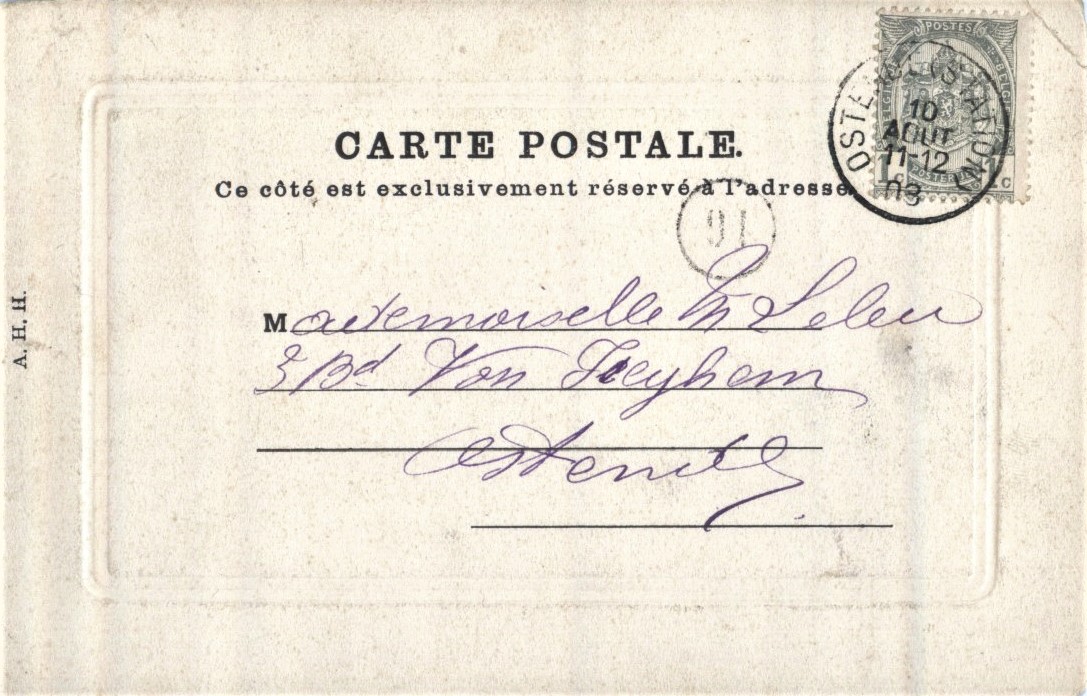 POSTES
BELGIQUE
1c
OSTENDE (STATION)
10
AOUT
11-12
03
CARTE POSTALE.
Ce côté est exclusivement réservé à l'adresse.
91
A. H. H.
Mademoiselle M Leleu
Bd Von
Ostende